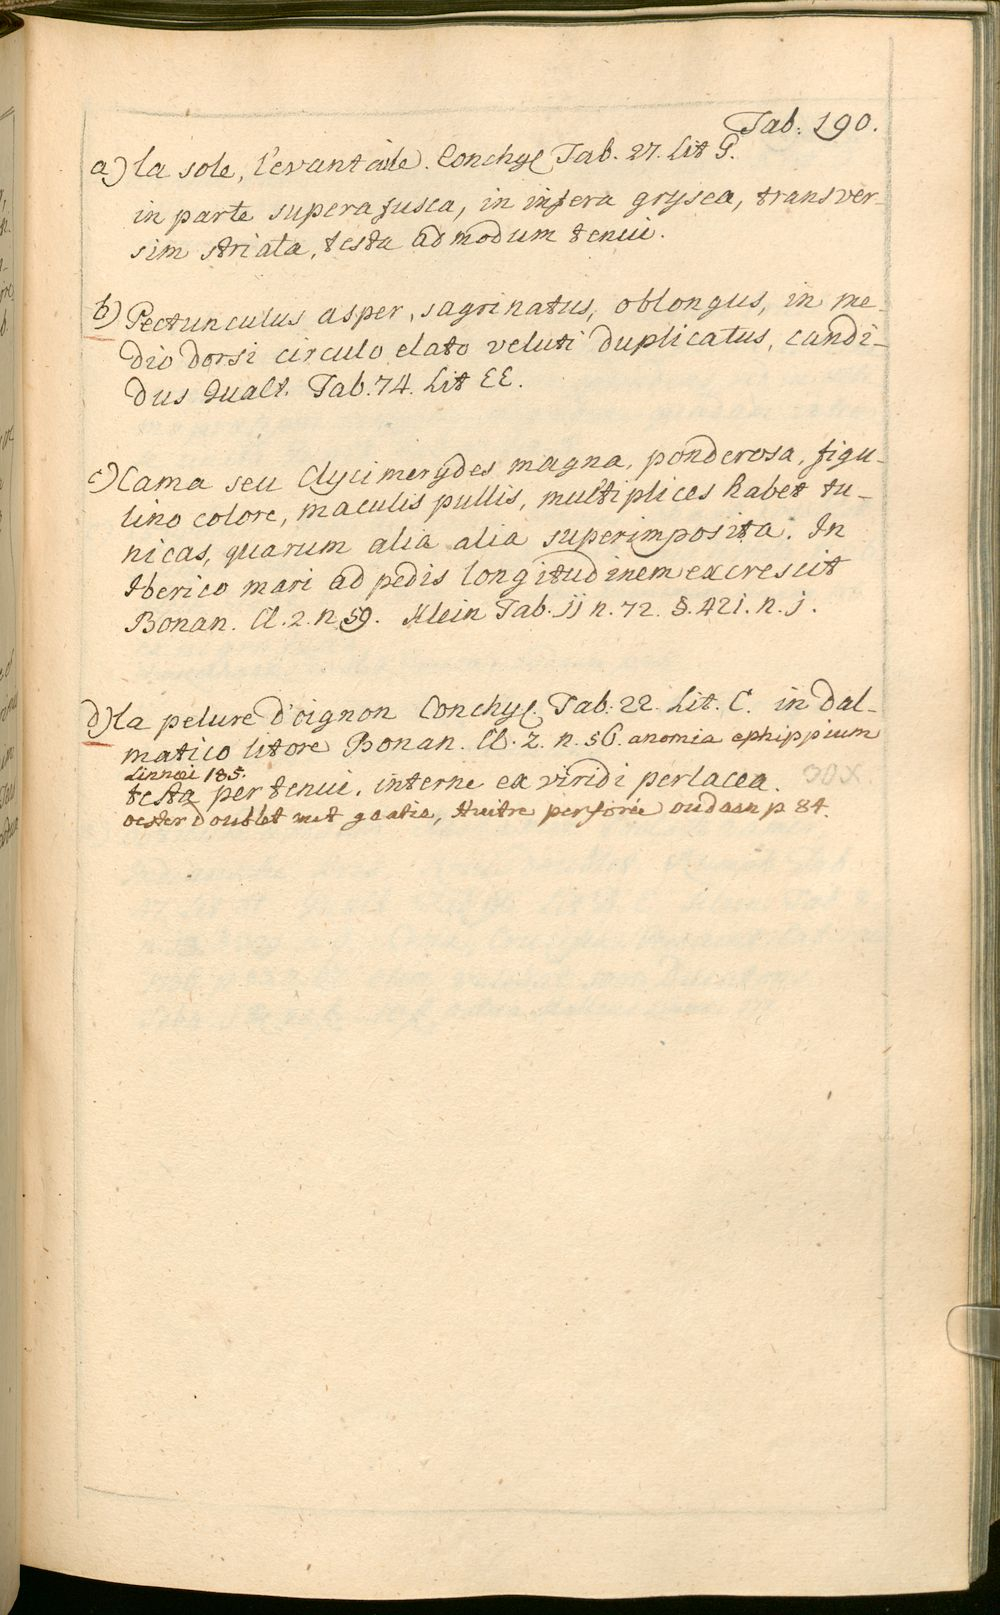 Tab: 190.
a) la sole, l'evantaile. Conchyl Tab. 27. Lit G.
in parte supera fusca, in infera grysea, transver-
sim striata, testa admodum tenui.
b) Pectunculus asper, sagrinatus, oblongus, in me-
dio dorsi circulo elato veluti duplicatus, candi-
dus Gualt. Tab. 74. Lit EE.
c) Cama seu Clycimerydes magna, ponderosa, figu-
lino colore, maculis pullis, multiplices habet tu-
nicas, quarum alia alia superimposita. In
Iberico mari ad pedis longitudinem excrescit
Bonan. Cl. 2. n 59. Klein Tab. jj n. 72. §. 421. n. j.
d) la pelure d'oignon Conchyl. Tab: 22. Lit. C. in dal-
matico litore Bonan. Cl. 2. n. 56. anomia ephippium
Linnæi 185.
testa per tenui, interne ex viridi perlacea.
oester doublet met gaatie, Huitre perforée oudaan p 84.